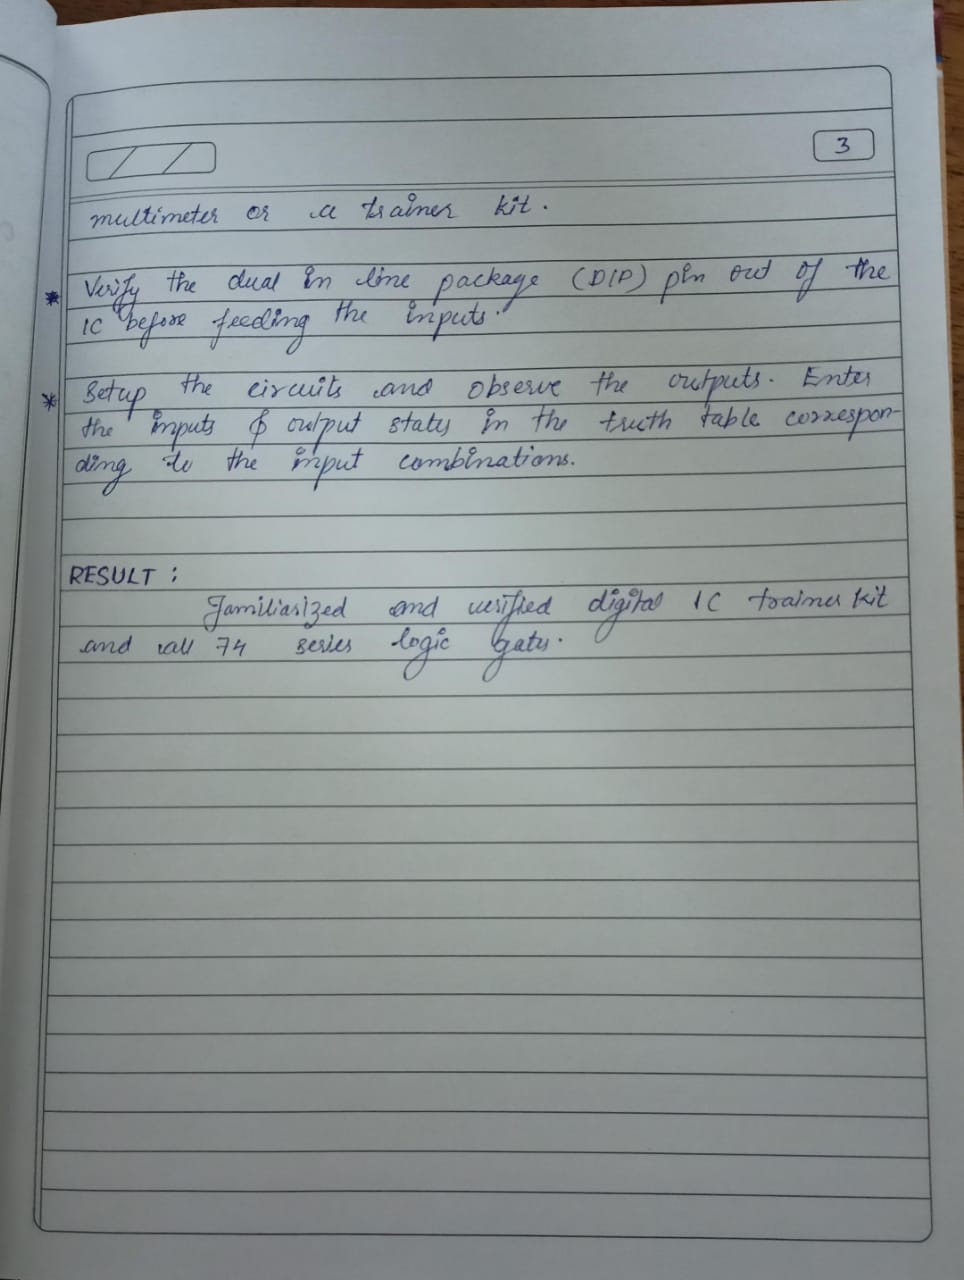 3
multimeter or a trainer kit.
* Verify the dual in line package (DIP) pin out of the
IC before feeding the inputs.
* Setup the circuits and observe the outputs. Enter
the inputs & output states in the truth table correspon-
ding to the input combinations.
RESULT :
Familiarized and verified digital IC trainer kit
and all 74 series logic gates.